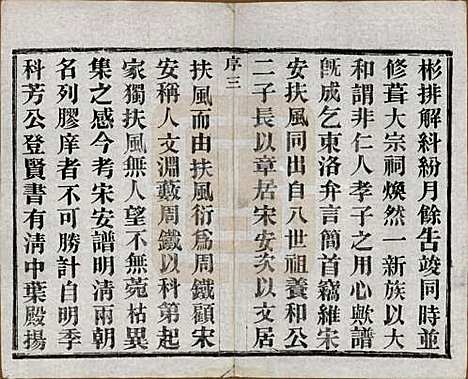 彬排解糾紛月餘告竣同時並
修葺大宗祠煥然一新族以大
和謂非仁人孝子之心歟譜
旣成乞東洛弁言簡首竊維宋
安扶風同出自八世祖養和公
二子長以章居宋安次以文居
序三
扶風而由扶風衍爲周鐵顧宋
安稱人文淵藪周鐵以科第起
家獨扶風無人望不無菀枯異
集之感今考宋安譜明淸兩朝
名列膠庠者不可勝計自明季
科芳公登賢書有淸中葉殿揚